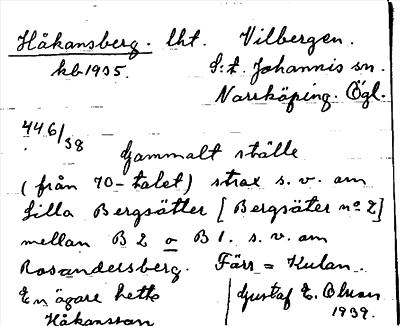 Håkansberg. lht. Vilbergen.
kb 1935. S:t. Johannis sn.
Norrköping. Ögl.
446/38
Gammalt ställe
(från 70-talet) strax s. v. om
Lilla Bergsätter [Bergsäter nº 2]
mellan B 2 o B 1. s. v. om
Rosendersberg. Förr = Kulan.
En ägare hette Gustaf E. Olsson
Håkansson 1939.